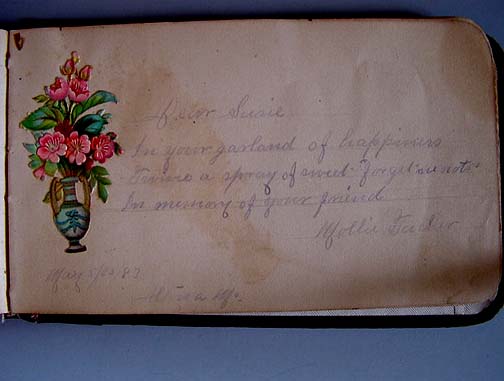 Dear Susie
In your garland of happiness
Twine a spray of sweet "forget me nots"
In memory of your friend
Mollie
May
Mo.